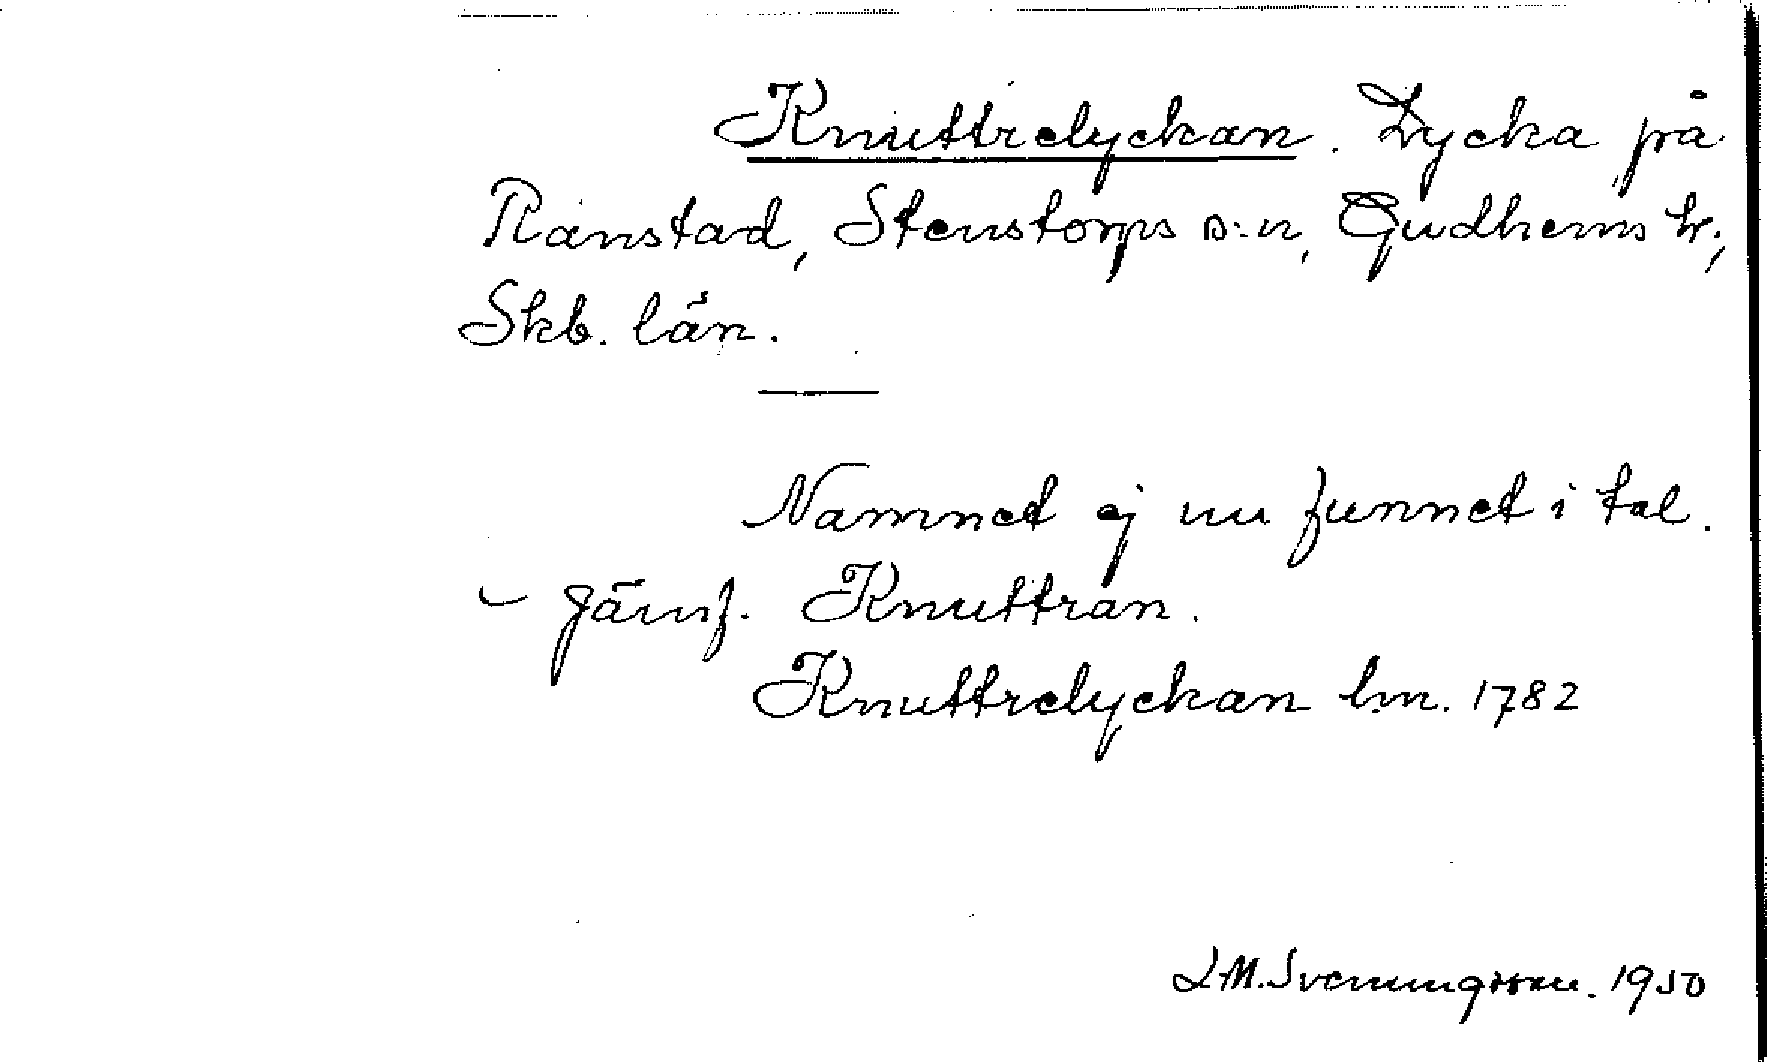 Knuttrelyckan. Lycka på
Ranstad, Stenstorps s:n, Gudhems hr,
Skb. län.
Namnet ej nu funnet i tal.
– Jämf. Knuttran.
Knuttrelyckan lm. 1782
L.M. Svenungsson. 1950